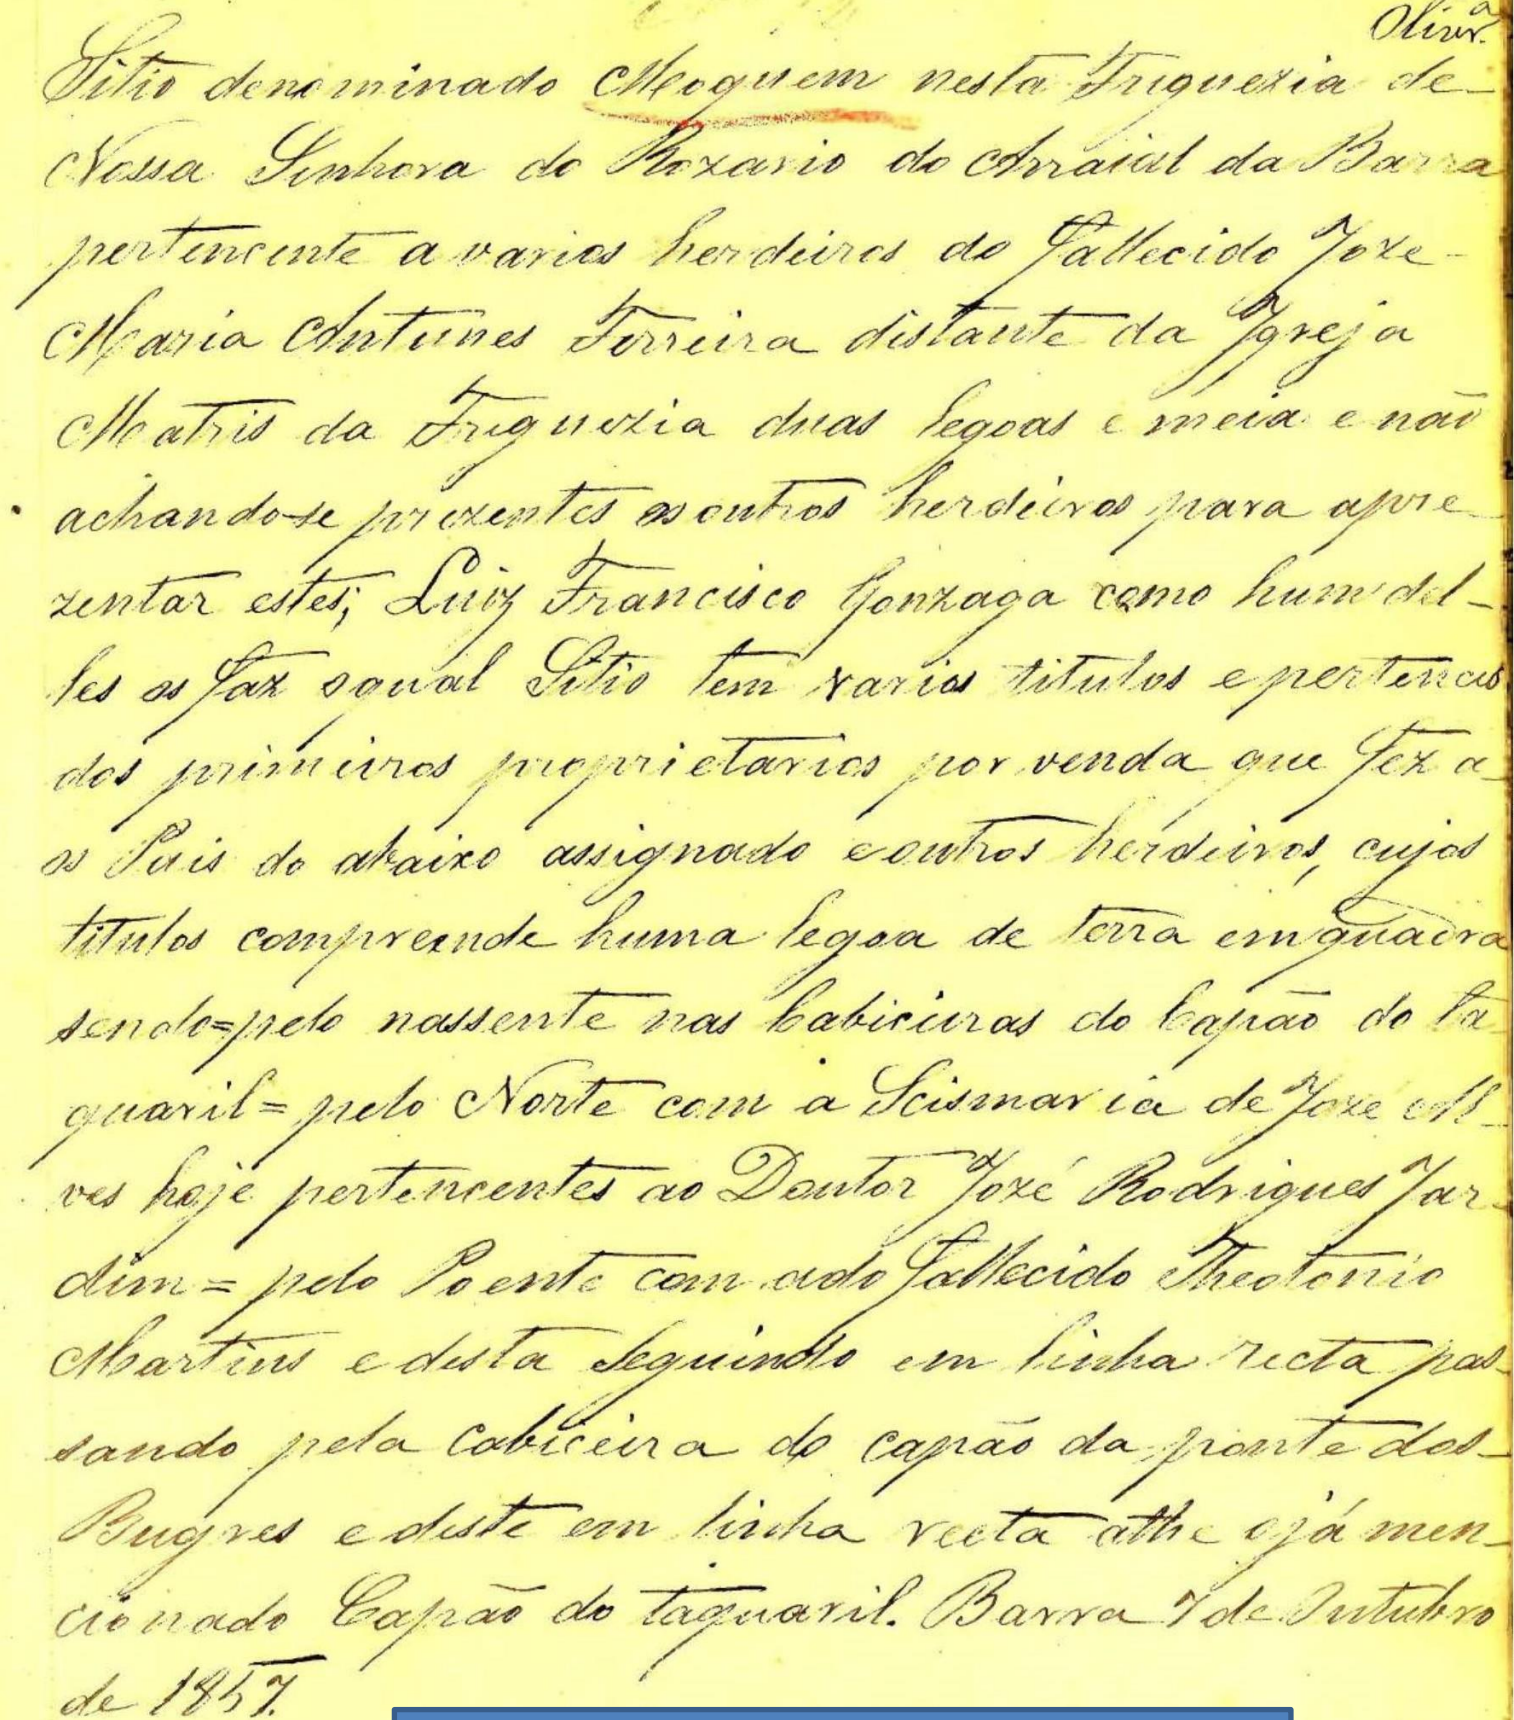 Olivrª.
Sitio denominado Moquem nesta Friguezia de-
Nossa Senhora do Rozario do Arraial da Barra
pertencente a varios herdeiros do Fallecido Joze-
Maria Antunes Ferreira distante da Igreja
Matris da Friguezia duas legoas e meia e não
achando-se prezentes os outros herdeiros para apre-
zentar estes; Luiz Francisco Gonzaga como hum del-
les os faz o qual Sitio tem varios titulos e pertences
dos primeiros proprietarios por venda que fez a-
os Pais do abaixo assignado e outros herdeiros, cujos
titulos compreende huma legoa de terra em quadra
sendo=pelo nassente nas Cabiciuras do Capão do ta-
quaril= pelo Norte com a Scismaria de Joze Al-
ves hoje pertencentes ao Doutor Jozé Rodrigues Jar-
dim= pelo Poente com a do Fallecido Theotonio
Martins e desta Seguindo em linha recta pas-
sando pela Cabiceira do capão da ponte dos-
Bugres e deste em linha recta athe o já men-
cionado Capão do taquaril. Barra 7 de Outubro
de 1857.